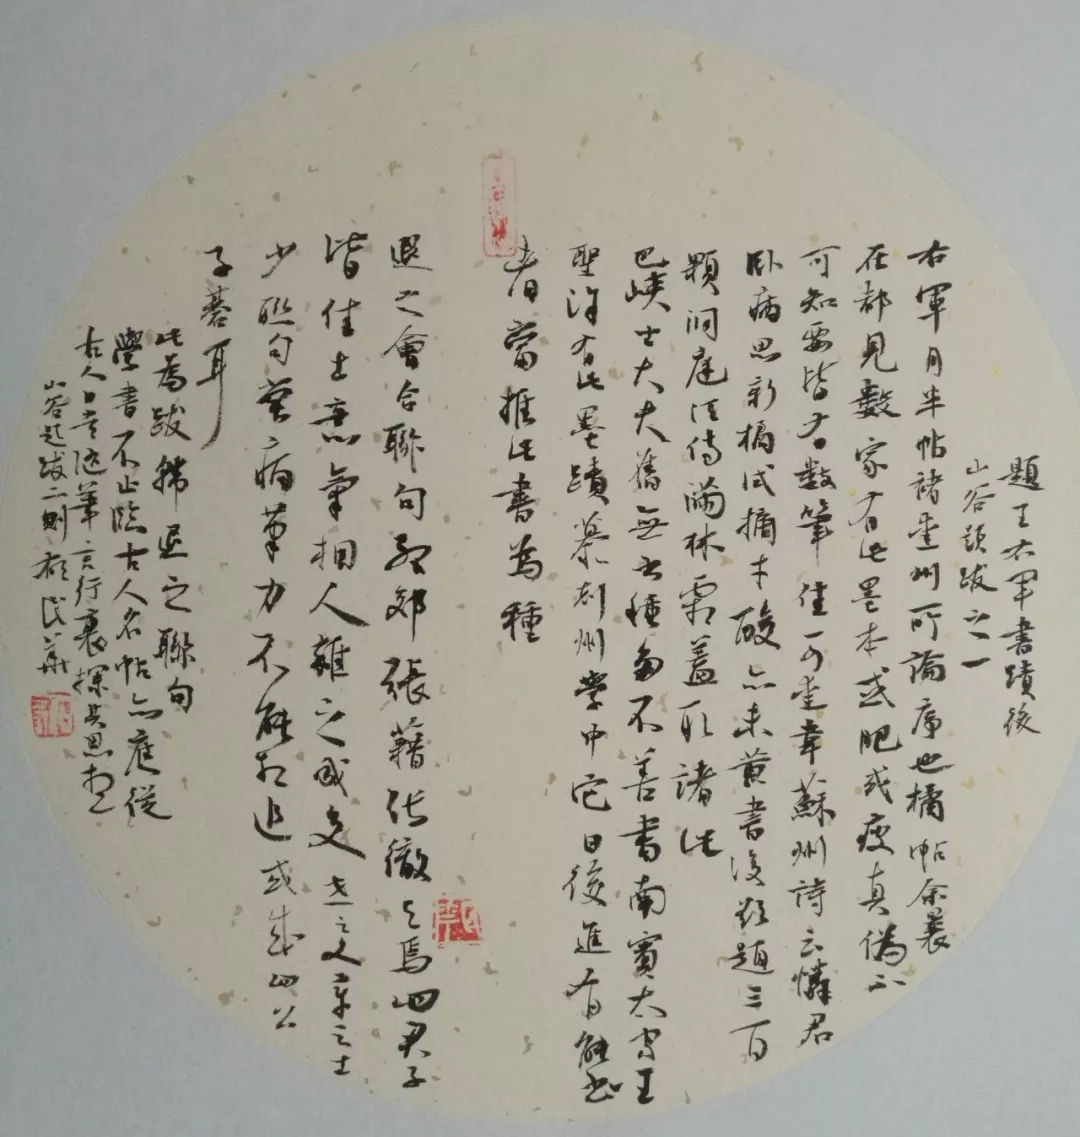 題王右軍書蹟後
山谷題跋之一
右軍月半帖諸州所論也橘帖余曩
在都見數家有此墨本或肥或瘦真偽不
可知要皆有數筆佳可喜韋蘇州詩云憐君
臥病思新橘試摘才酸亦未黃書後欲題三百
顆洞庭須待滿林霜蓋取諸此
巴峽士大夫舊無書種多不善書南賓太守王
聖涂有此墨蹟慕刻州學中它日後進有能書
者當推此書為種
退之會合聯句孟郊張籍張徹與焉四君子
皆佳士意氣相入雜之成文世之文章之士
少聯句嘗病筆力不能相追或成四公
子棊耳
此為跋韓退之聯句
學書不止臨古人名帖亦應從
古人日常隨筆言行裏探其思想
山谷題跋二則 民華